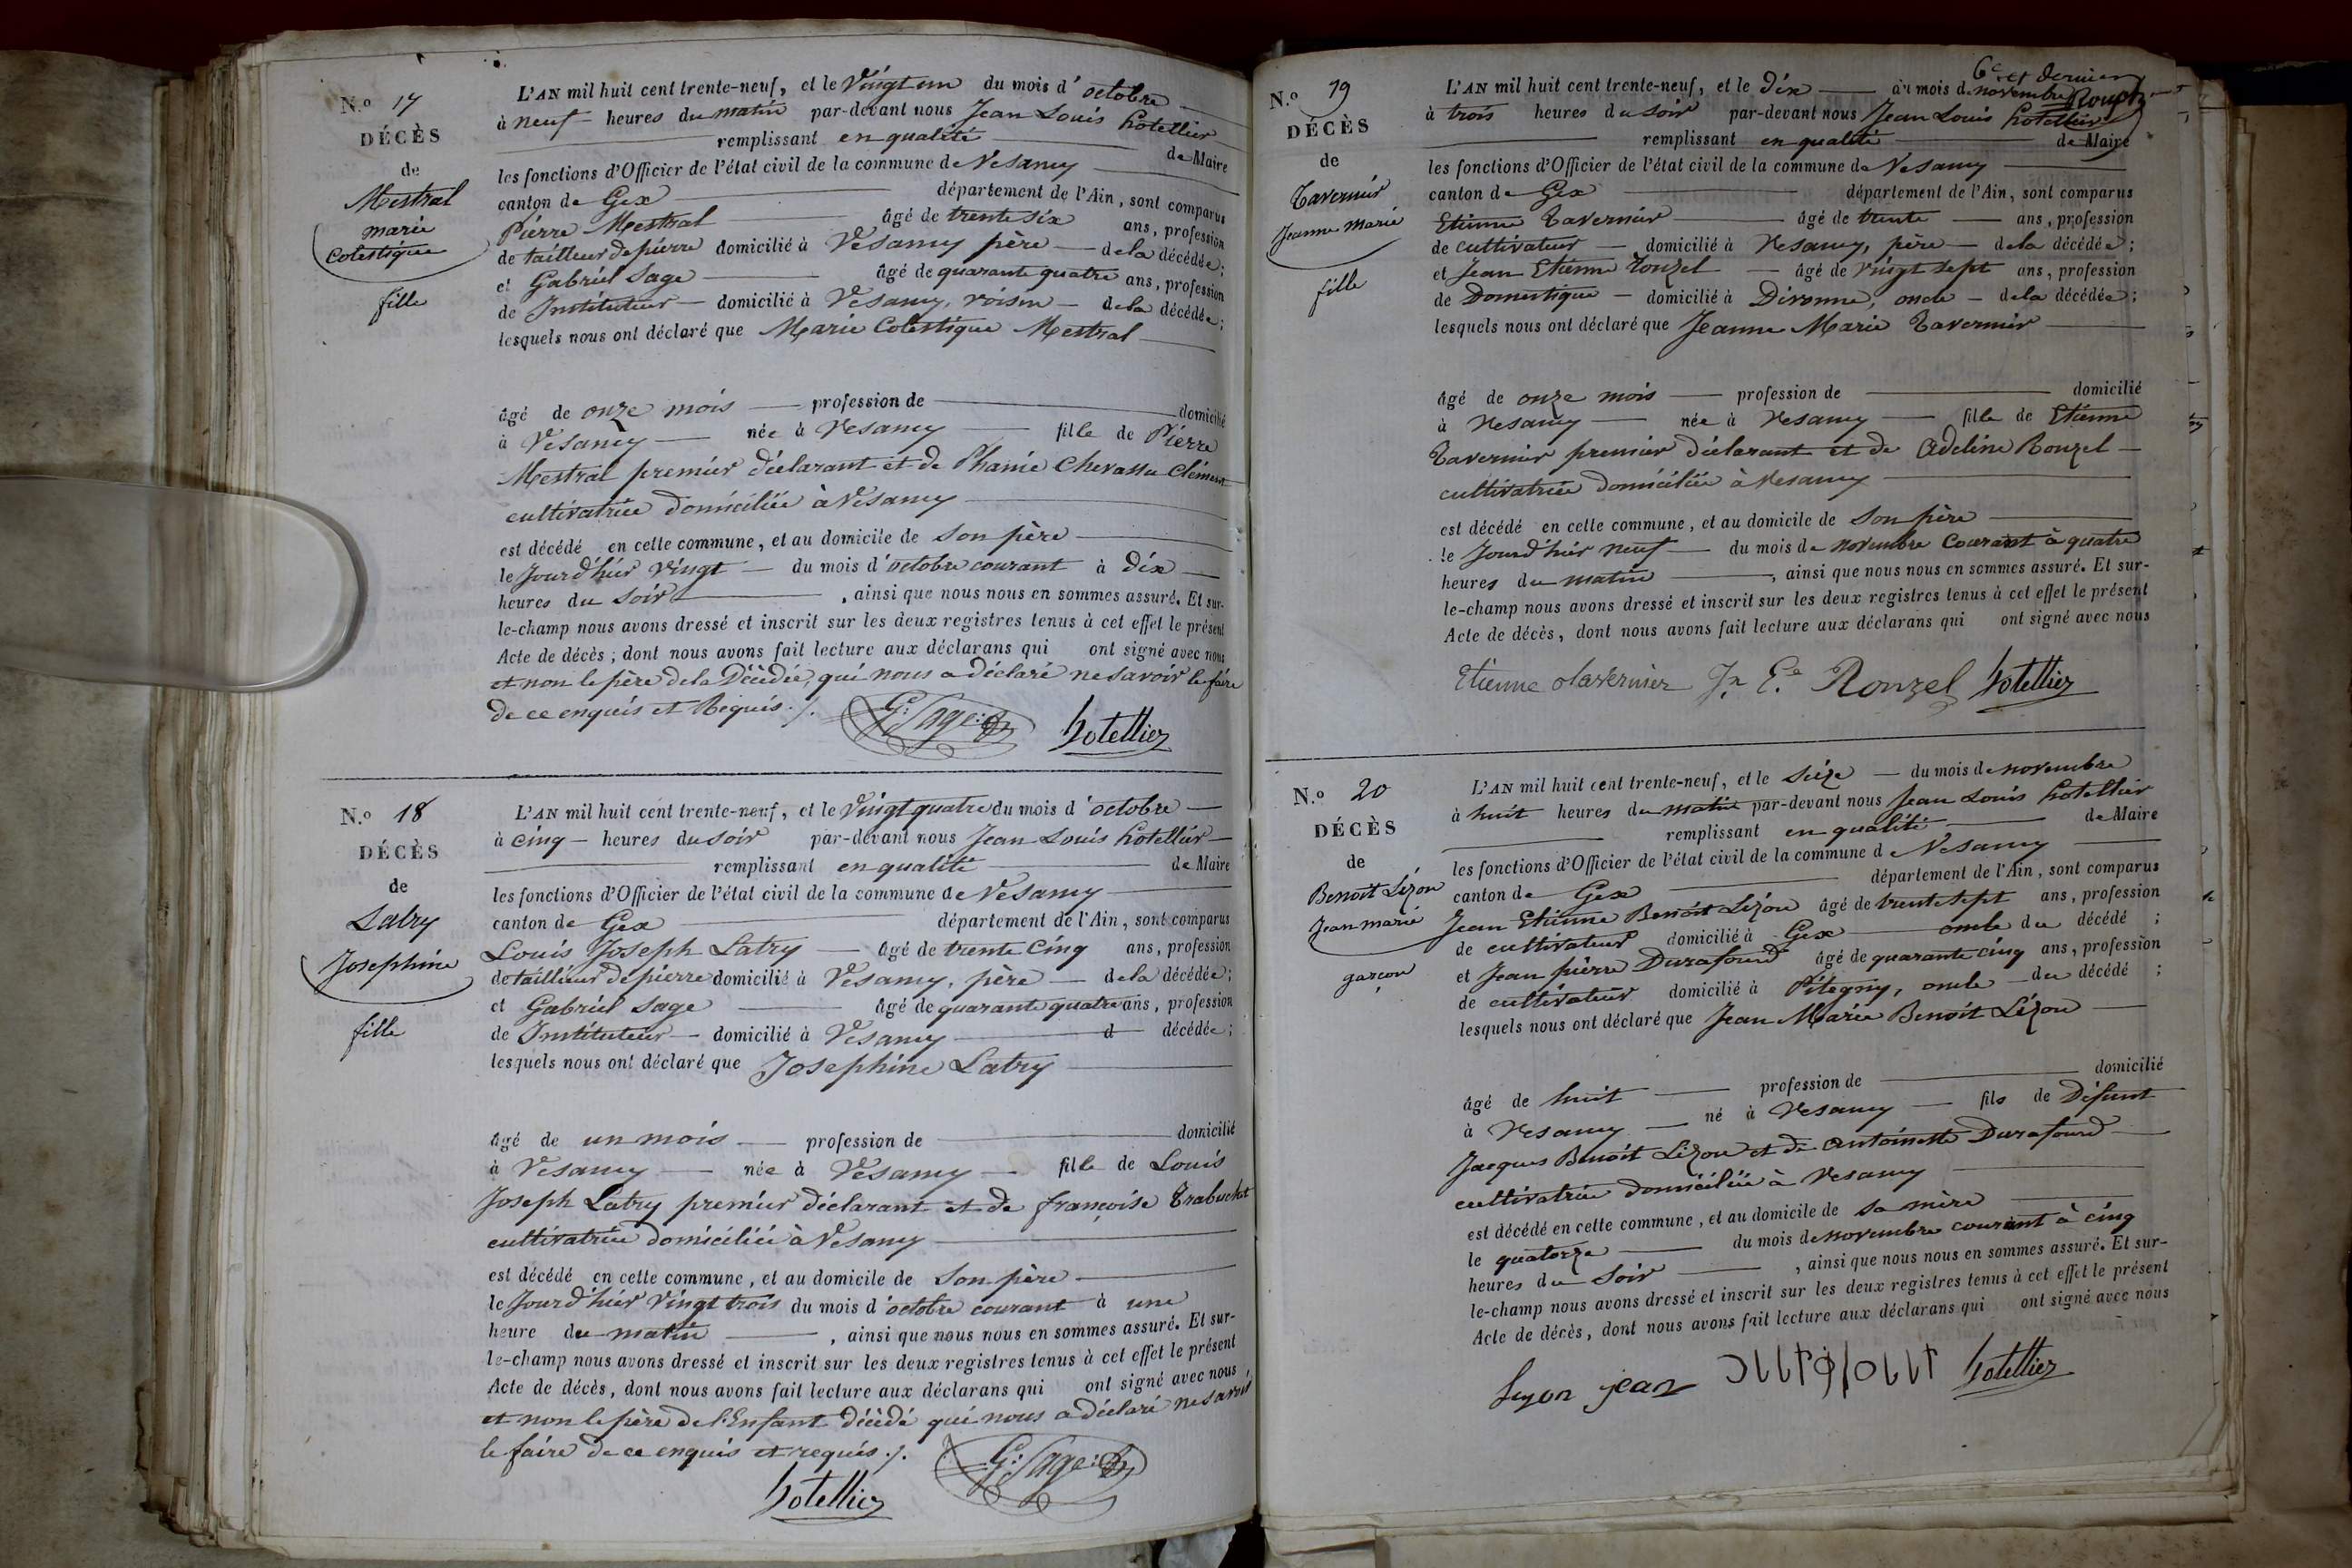 N.o 17
DÉCÈS
de
Mestral
marie
Colestique
fille
L'AN mil huit cent trente-neuf, et le Vingt un du mois d'octobre
à neuf heures du matin par-devant nous Jean Louis hotellier
remplissant en qualité de Maire
les fonctions d'Officier de l'état civil de la commune de Vesancy
canton de Gex département de l'Ain, sont comparus
Pierre Mestral âgé de trente six ans, profession
de tailleur de pierre domicilié à Vesancy père de la décédée;
et Gabriel Sage âgé de quarante quatre ans, profession
de Instituteur domicilié à Vesancy, voisin de la décédée;
lesquels nous ont déclaré que Marie Colestique Mestral
âgé de onze mois profession de domicilié
à Vesancy née à Vesancy fille de Pierre
Mestral premier déclarant et de Phanie Chevassu Clément
cultivatrice domiciliée à Vesancy
est décédé en cette commune, et au domicile de Son père
le Jourd'hier Vingt du mois d'octobre courant à dix
heures du Soir, ainsi que nous nous en sommes assuré. Et sur-
le-champ nous avons dressé et inscrit sur les deux registres tenus à cet effet le présent
Acte de décès; dont nous avons fait lecture aux déclarans qui ont signé avec nous
et non le père de la Décédée, qui nous a déclaré ne savoir le faire
de ce enquis et Requis./.
G: Sage: hotellier
N.o 18
DÉCÈS
de
Latry
Josephine
fille
L'AN mil huit cent trente-neuf, et le Vingt quatre du mois d'octobre
à cinq heures du soir par-devant nous Jean Louis hotellier
remplissant en qualité de Maire
les fonctions d'Officier de l'état civil de la commune de Vesancy
canton de Gex département de l'Ain, sont comparus
Louis Joseph Latry âgé de trente Cinq ans, profession
de tailleur de pierre domicilié à Vesancy, père de la décédée;
et Gabriel Sage âgé de quarante quatre ans, profession
de Instituteur domicilié à Vesancy d décédée;
lesquels nous ont déclaré que Josephine Latry
âgé de un mois profession de domicilié
à Vesancy née à Vesancy fille de Louis
Joseph Latry premier déclarant et de françoise Trabuchet
cultivatrice domiciliée à Vesancy
est décédé en cette commune, et au domicile de Son père
le Jourd'hier Vingt trois du mois d'octobre courant à une
heure du matin, ainsi que nous nous en sommes assuré. Et sur-
le-champ nous avons dressé et inscrit sur les deux registres tenus à cet effet le présent
Acte de décès, dont nous avons fait lecture aux déclarans qui ont signé avec nous
et non le père de l'Enfant décédé qui nous a déclaré ne savoir
le faire de ce enquis et requis./.
G: Sage:
hotellier
6e et dernier
N.o 19
DÉCÈS
de
Tavernier
Jeanne Marie
fille
L'AN mil huit cent trente-neuf, et le Dix du mois de novembre
à trois heures du Soir par-devant nous Jean Louis hotellier
remplissant en qualité de Maire
les fonctions d'Officier de l'état civil de la commune de Vesancy
canton de Gex département de l'Ain, sont comparus
Etienne Tavernier âgé de trente ans, profession
de cultivateur domicilié à Vesancy, père de la décédée;
et Jean Etienne Ronzel âgé de vingt sept ans, profession
de Domestique domicilié à Divonne, oncle de la décédée;
lesquels nous ont déclaré que Jeanne Marie Tavernier
âgé de onze mois profession de domicilié
à Vesancy née à Vesancy fille de Etienne
Tavernier premier déclarant et de Adeline Ronzel
cultivatrice domiciliée à Vesancy
est décédé en cette commune, et au domicile de Son père
le Jourd'hier neuf du mois de novembre Courant à quatre
heures du matin, ainsi que nous nous en sommes assuré. Et sur-
le-champ nous avons dressé et inscrit sur les deux registres tenus à cet effet le présent
Acte de décès, dont nous avons fait lecture aux déclarans qui ont signé avec nous
Etienne tavernier Jn Ee Ronzel hotellier
N.o 20
DÉCÈS
de
Benoit Lizon
Jean marie
garçon
L'AN mil huit cent trente-neuf, et le Seize du mois de novembre
à huit heures du matin par-devant nous Jean Louis hotellier
remplissant en qualité de Maire
les fonctions d'Officier de l'état civil de la commune de Vesancy
canton de Gex département de l'Ain, sont comparus
Jean Etienne Benoit Lizon âgé de trente sept ans, profession
de cultivateur domicilié à Gex oncle du décédé;
et Jean pierre Durafourd âgé de quarante cinq ans, profession
de cultivateur domicilié à Pitegny, oncle du décédé;
lesquels nous ont déclaré que Jean Marie Benoit Lizon
âgé de huit profession de domicilié
à Vesancy né à Vesancy fils de Défunt
Jacques Benoit Lizon et de antoinette Durafourd
cultivatrice domiciliée à Vesancy
est décédé en cette commune, et au domicile de sa mère
le quatorze du mois de novembre courant à cinq
heures du Soir, ainsi que nous nous en sommes assuré. Et sur-
le-champ nous avons dressé et inscrit sur les deux registres tenus à cet effet le présent
Acte de décès, dont nous avons fait lecture aux déclarans qui ont signé avec nous
Lizon jean hotellier